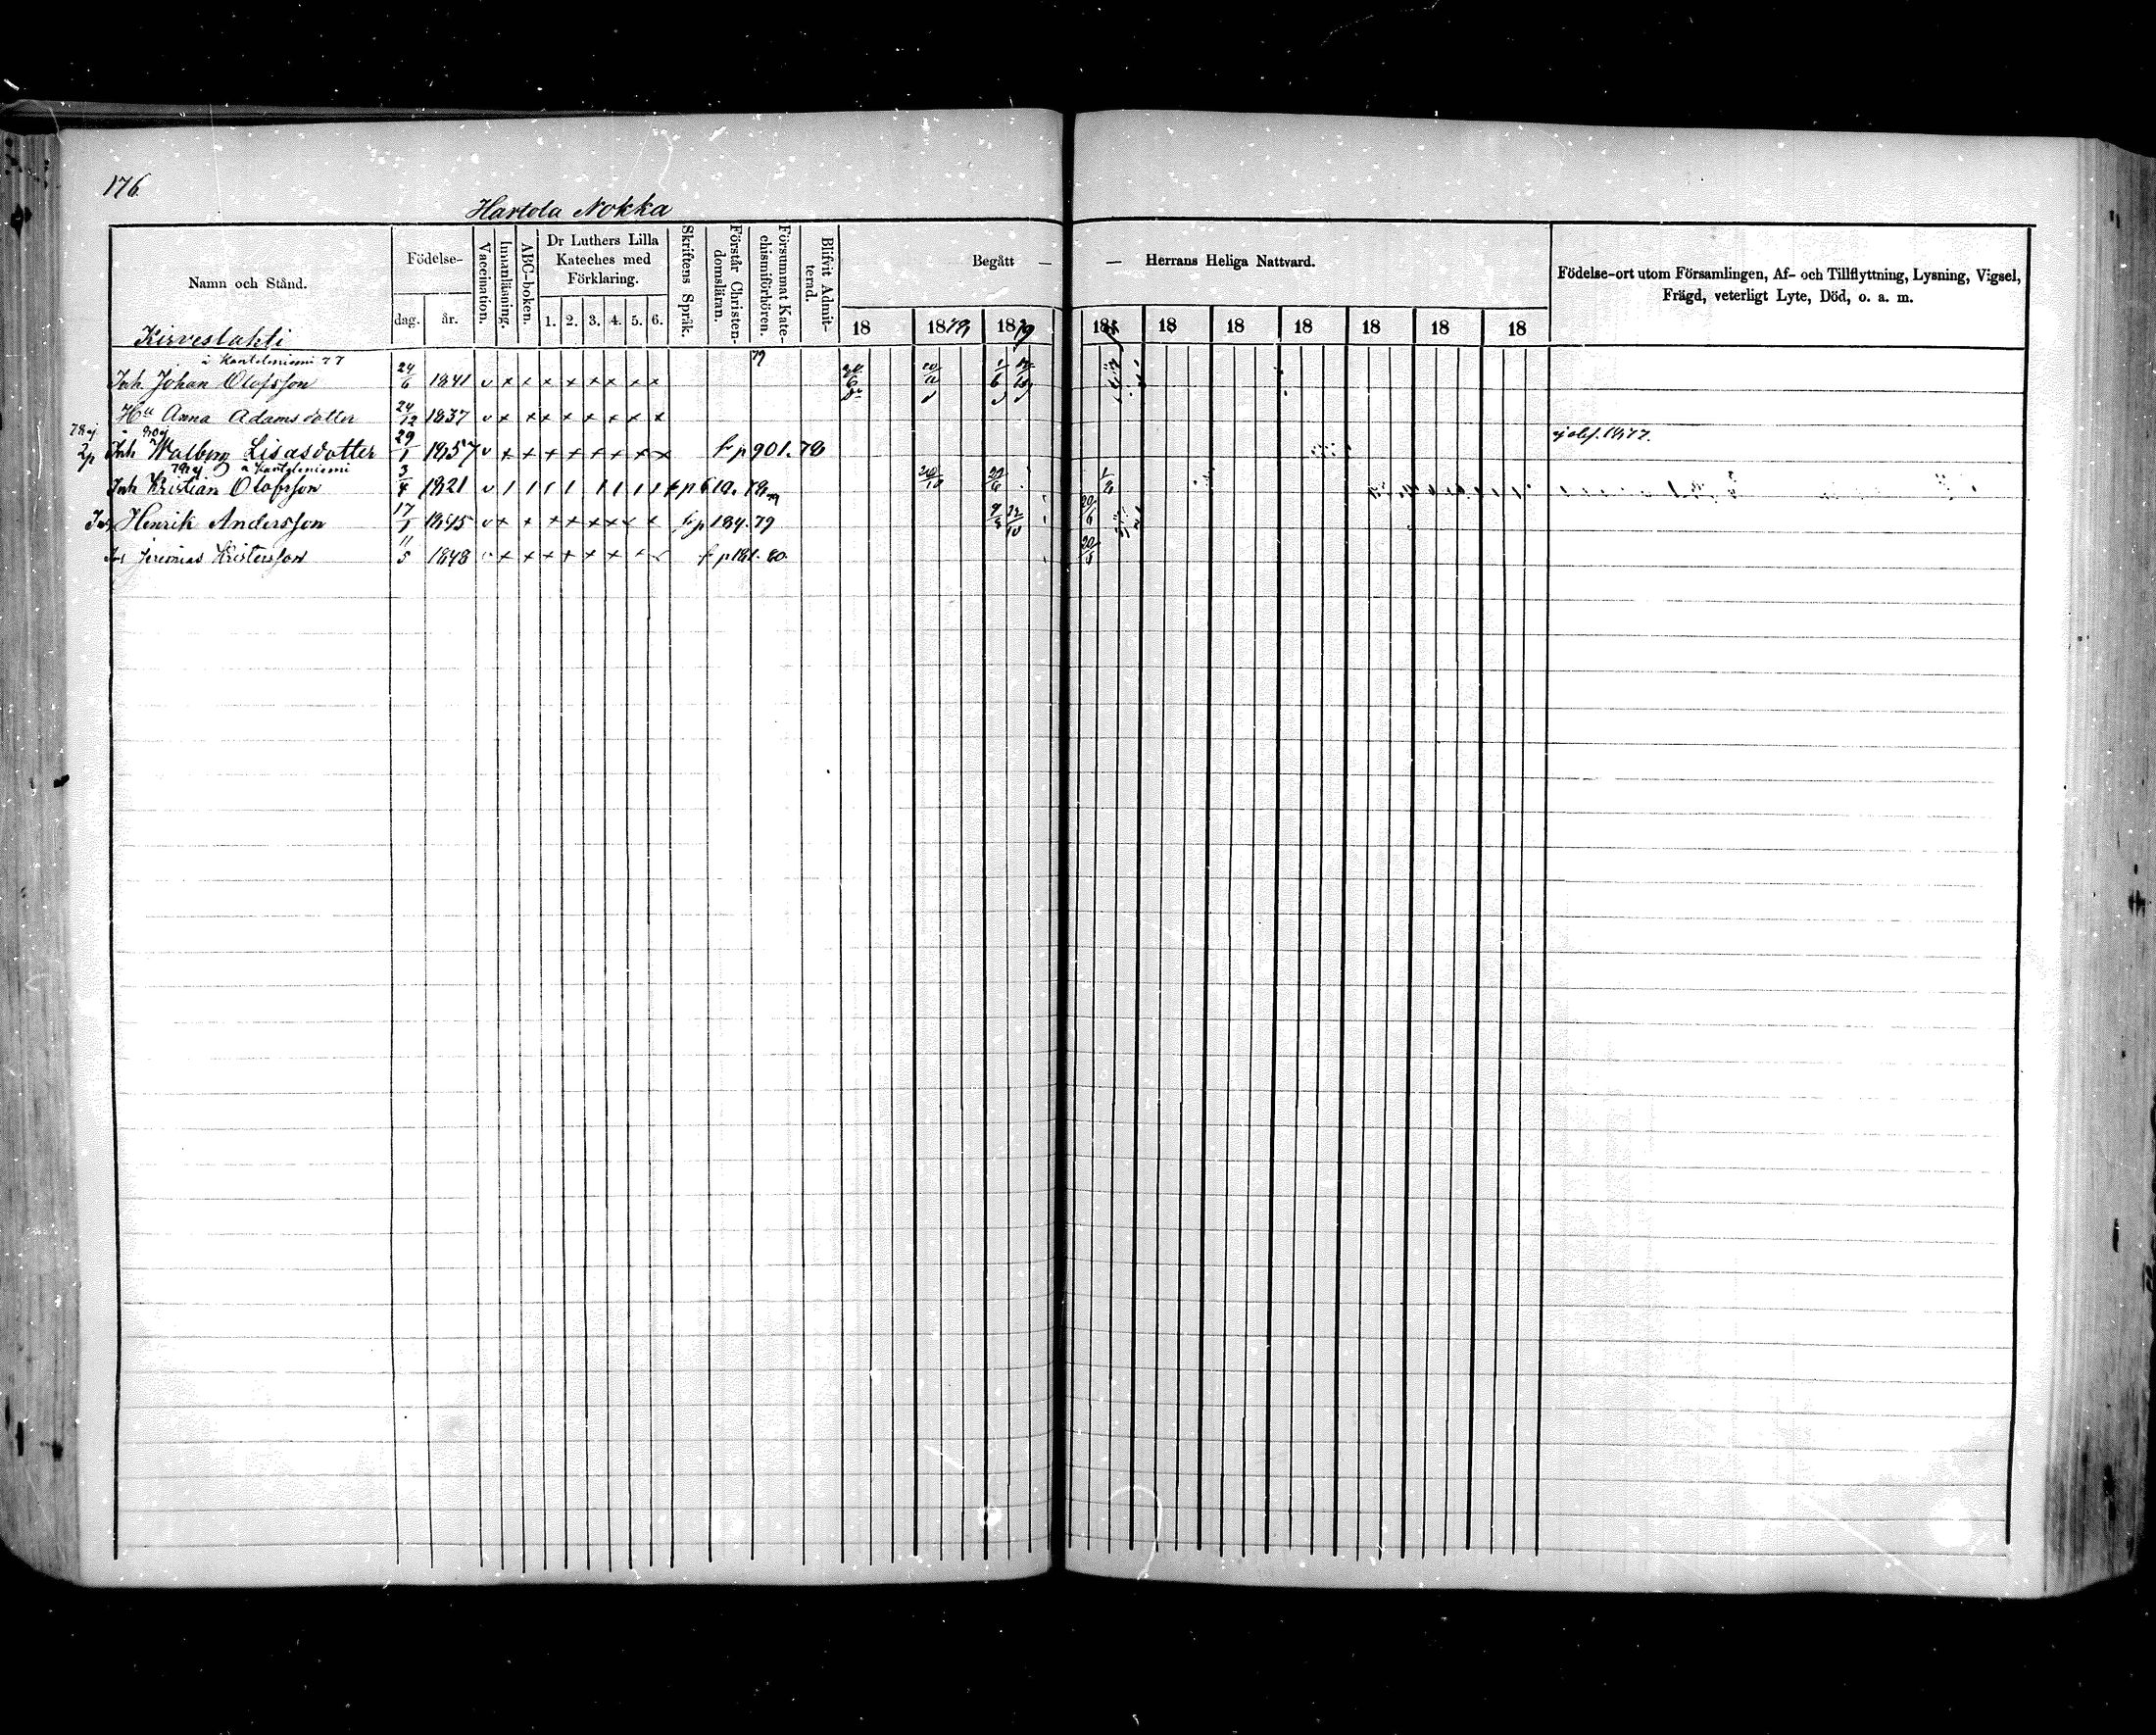 176
Hartola Nokka
Namn och Stånd.
Födelse-
dag.
år.
Vaccination.
Innanläsning.
ABC-boken.
Dr Luthers Lilla
Kateches med
Förklaring.
1. 2. 3. 4. 5. 6.
Skriftens Språk.
Förstår Christen-
domsläran.
Försummat Kate-
chismiförhören.
Blifvit Admit-
terad.
Begått — — Herrans Heliga Nattvard.
18 18 78 18 79 18 18 18 18 18 18 18
Födelse-ort utom Församlingen, Af- och Tillflyttning, Lysning, Vigsel,
Frägd, veterligt Lyte, Död, o. a. m.
Kirveslahti
79
Inh Johan Olofsson 24/6 1841 v x x x x x x x x
Hu Anna Adamsdotter 24/12 1837 v x x x x x x x x
78 ej
Inh Walborg Lisasdotter 29/1 1857 v x x x x x x x x fr p 901. 78
Inh Kristian Olofsson 3/4 1821 v
Henrik Andersson 17/1 1845 v x x x x x x x x fr p 184. 79
Jeremias Kristersson 11/5 1848 fr p 181. 80.